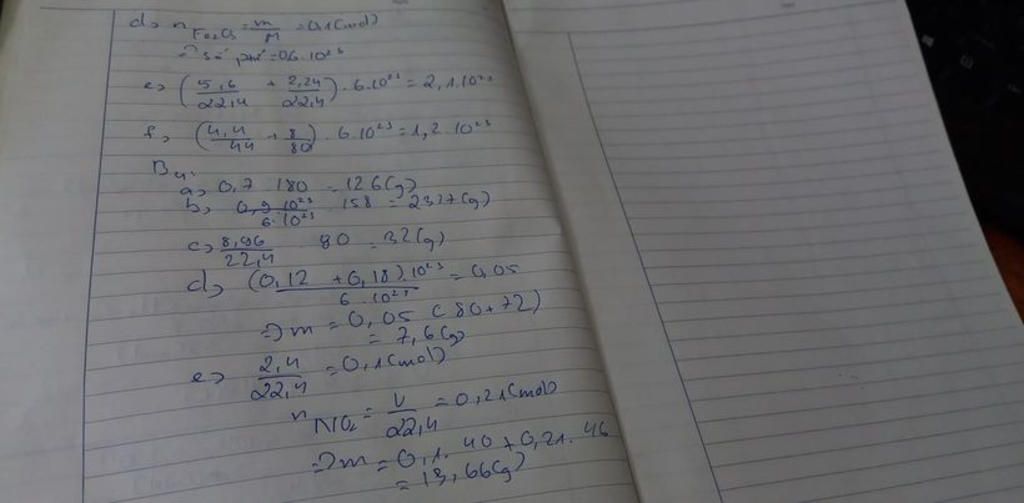 d, n Fe2O3 = m/M = 0,1 (mol)
=> số ptử = 0,6.10^23
e, (5,6/22,4 + 2,24/22,4).6.10^23 = 2,1.10^23
f, (4,4/44 + 8/80).6.10^23 = 1,2.10^23
B4:
a, 0,7 . 180 = 126 (g)
b, 0,9.10^23/6.10^23 . 158 = 23,7 (g)
c, 8,96/22,4 . 80 = 32 (g)
d, (0,12 + 0,18).10^23/6.10^23 = 0,05
=> m = 0,05 (80+72)
= 7,6 (g)
e, 2,4/22,4 = 0,1 (mol)
n NO2 = V/22,4 = 0,21 (mol)
=> m = 0,1.40 + 0,21.46
= 13,66 (g)